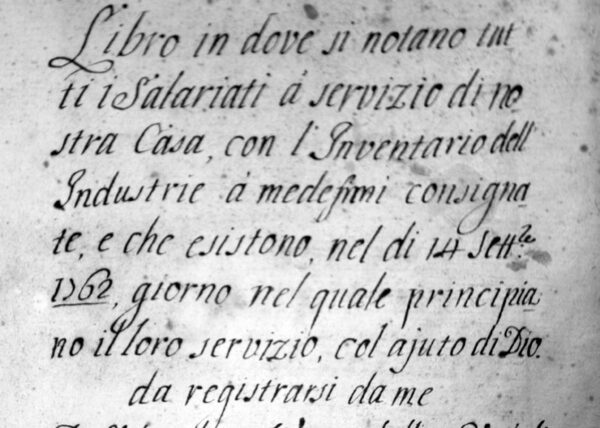 Libro in dove si notano tut
ti i Salariati á servizio di no
stra Casa, con l'Inventario dell'
Industrie á medesimi consigna
te, e che esistono, nel di 14 Sett.re
1762, giorno nel quale principia
no il loro servizio, col ajuto di Dio.
da registrarsi da me